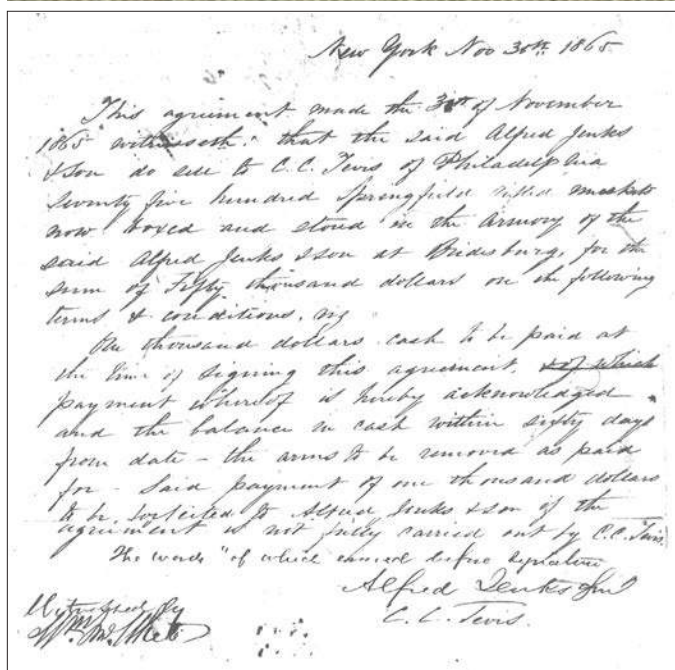 New York Nov 30th 1865
This agreement made the 30th of November
1865 witnesseth: that the said Alfred Jenks
& Son do sell to C.C. Tevis of Philadelphia
Seventy five hundred Springfield rifled muskets
now boxed and stored in the Armory of the
said Alfred Jenks & Son at Bridesburg, for the
sum of Fifty thousand dollars on the following
terms & conditions, viz
One thousand dollars cash to be paid at
the time of signing this agreement, & of which
payment whereof is hereby acknowledged
and the balance in cash within sixty days
from date – the arms to be removed as paid
for – Said payment of one thousand dollars
to be forfeited to Alfred Jenks & Son if the
agreement is not fully carried out by C.C. Tevis.
The words "of which" before signature
Alfred Jenks & Son
C. C. Tevis.
Witnessed by